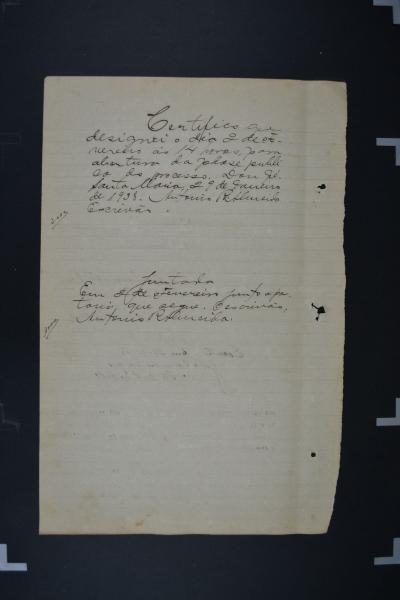 Certifico que
designei o dia 2 de fe-
vereiro ás 14 horas, para
abertura da phase publi-
ca do processo. Dou fé.
Santa Maria, 29 de Janeiro
de 1938. Antonio R. Almeida
Escrivão.
Juntada
Em 2 de Fevereiro junto a pe-
que segue. O escrivão,
Antonio R. Almeida.